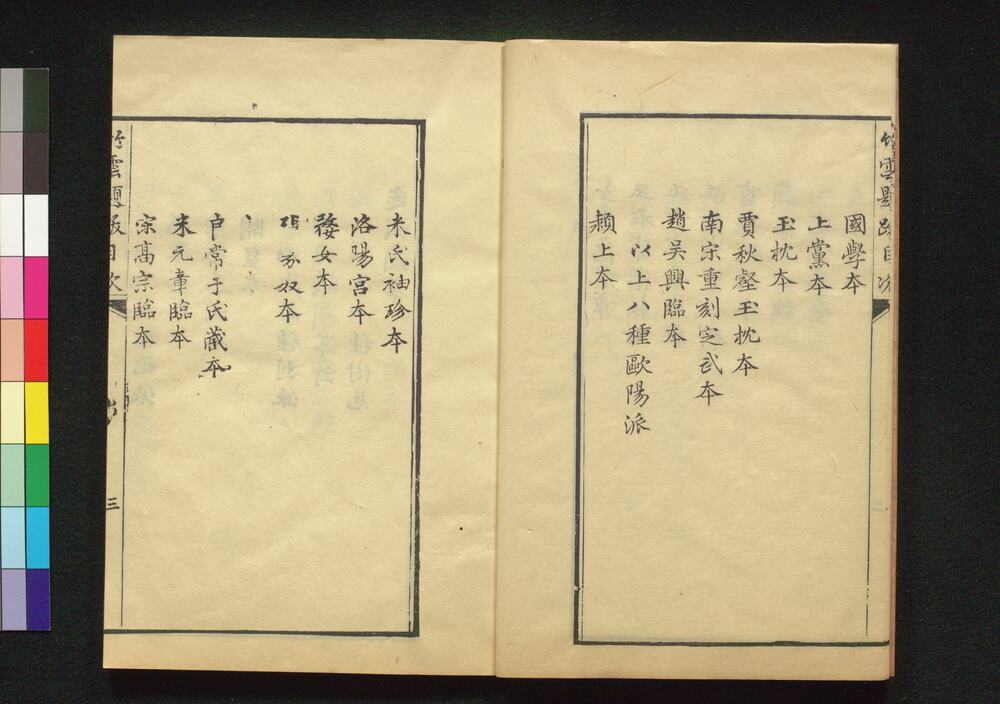 國學本
上黨本
玉枕本
賈秋壑玉枕本
南宋重刻定武本
趙吳興臨本
以上八種歐陽派
潁上本
米氏袖珍本
洛陽宮本
婺女本
奴本
常于氏藏本
米元章臨本
宗高宗臨本
竹雲題跋目次
三